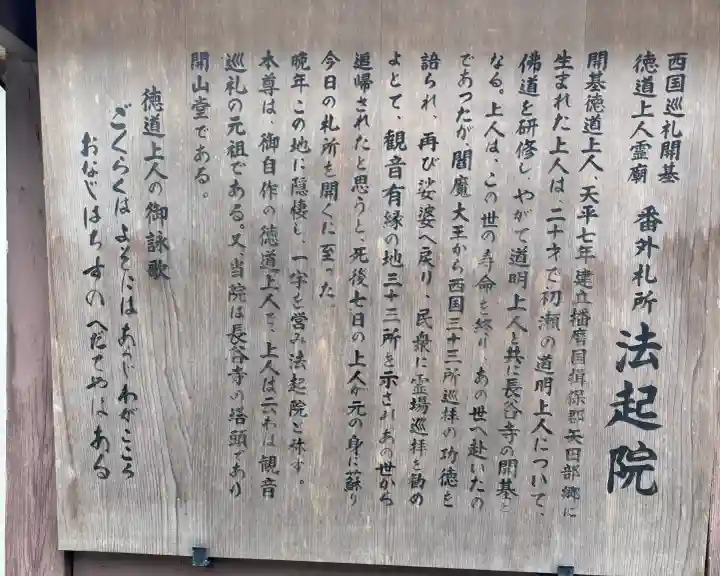 西国巡礼開基
徳道上人霊廟
番外札所 法起院
開基徳道上人、天平七年建立播磨国揖保郡矢田部郷に
生まれた上人は、二十才で初瀬の道明上人について、
佛道を研修し、やがて道明上人と共に長谷寺の開基と
なる。上人は、この世の寿命を終り、あの世へ赴いたの
であつたが、閻魔大王から西国三十三所巡拝の功徳を
語られ、再び娑婆へ戻り、民衆に霊場巡拝を勧め
よとて、観音有縁の地三十三所を示されあの世から
追帰されたと思うと、死後七日の上人が元の身に蘇り
今日の札所を開くに至った。
晩年この地に隠棲し、一宇を営み法起院と称す。
本尊は、御自作の徳道上人で、上人は云わば観音
巡礼の元祖である。又、当院は長谷寺の塔頭であり
開山堂である。
徳道上人の御詠歌
ごくらくはよそにはあらじわがこころ
おなじはちすの へだてやはある